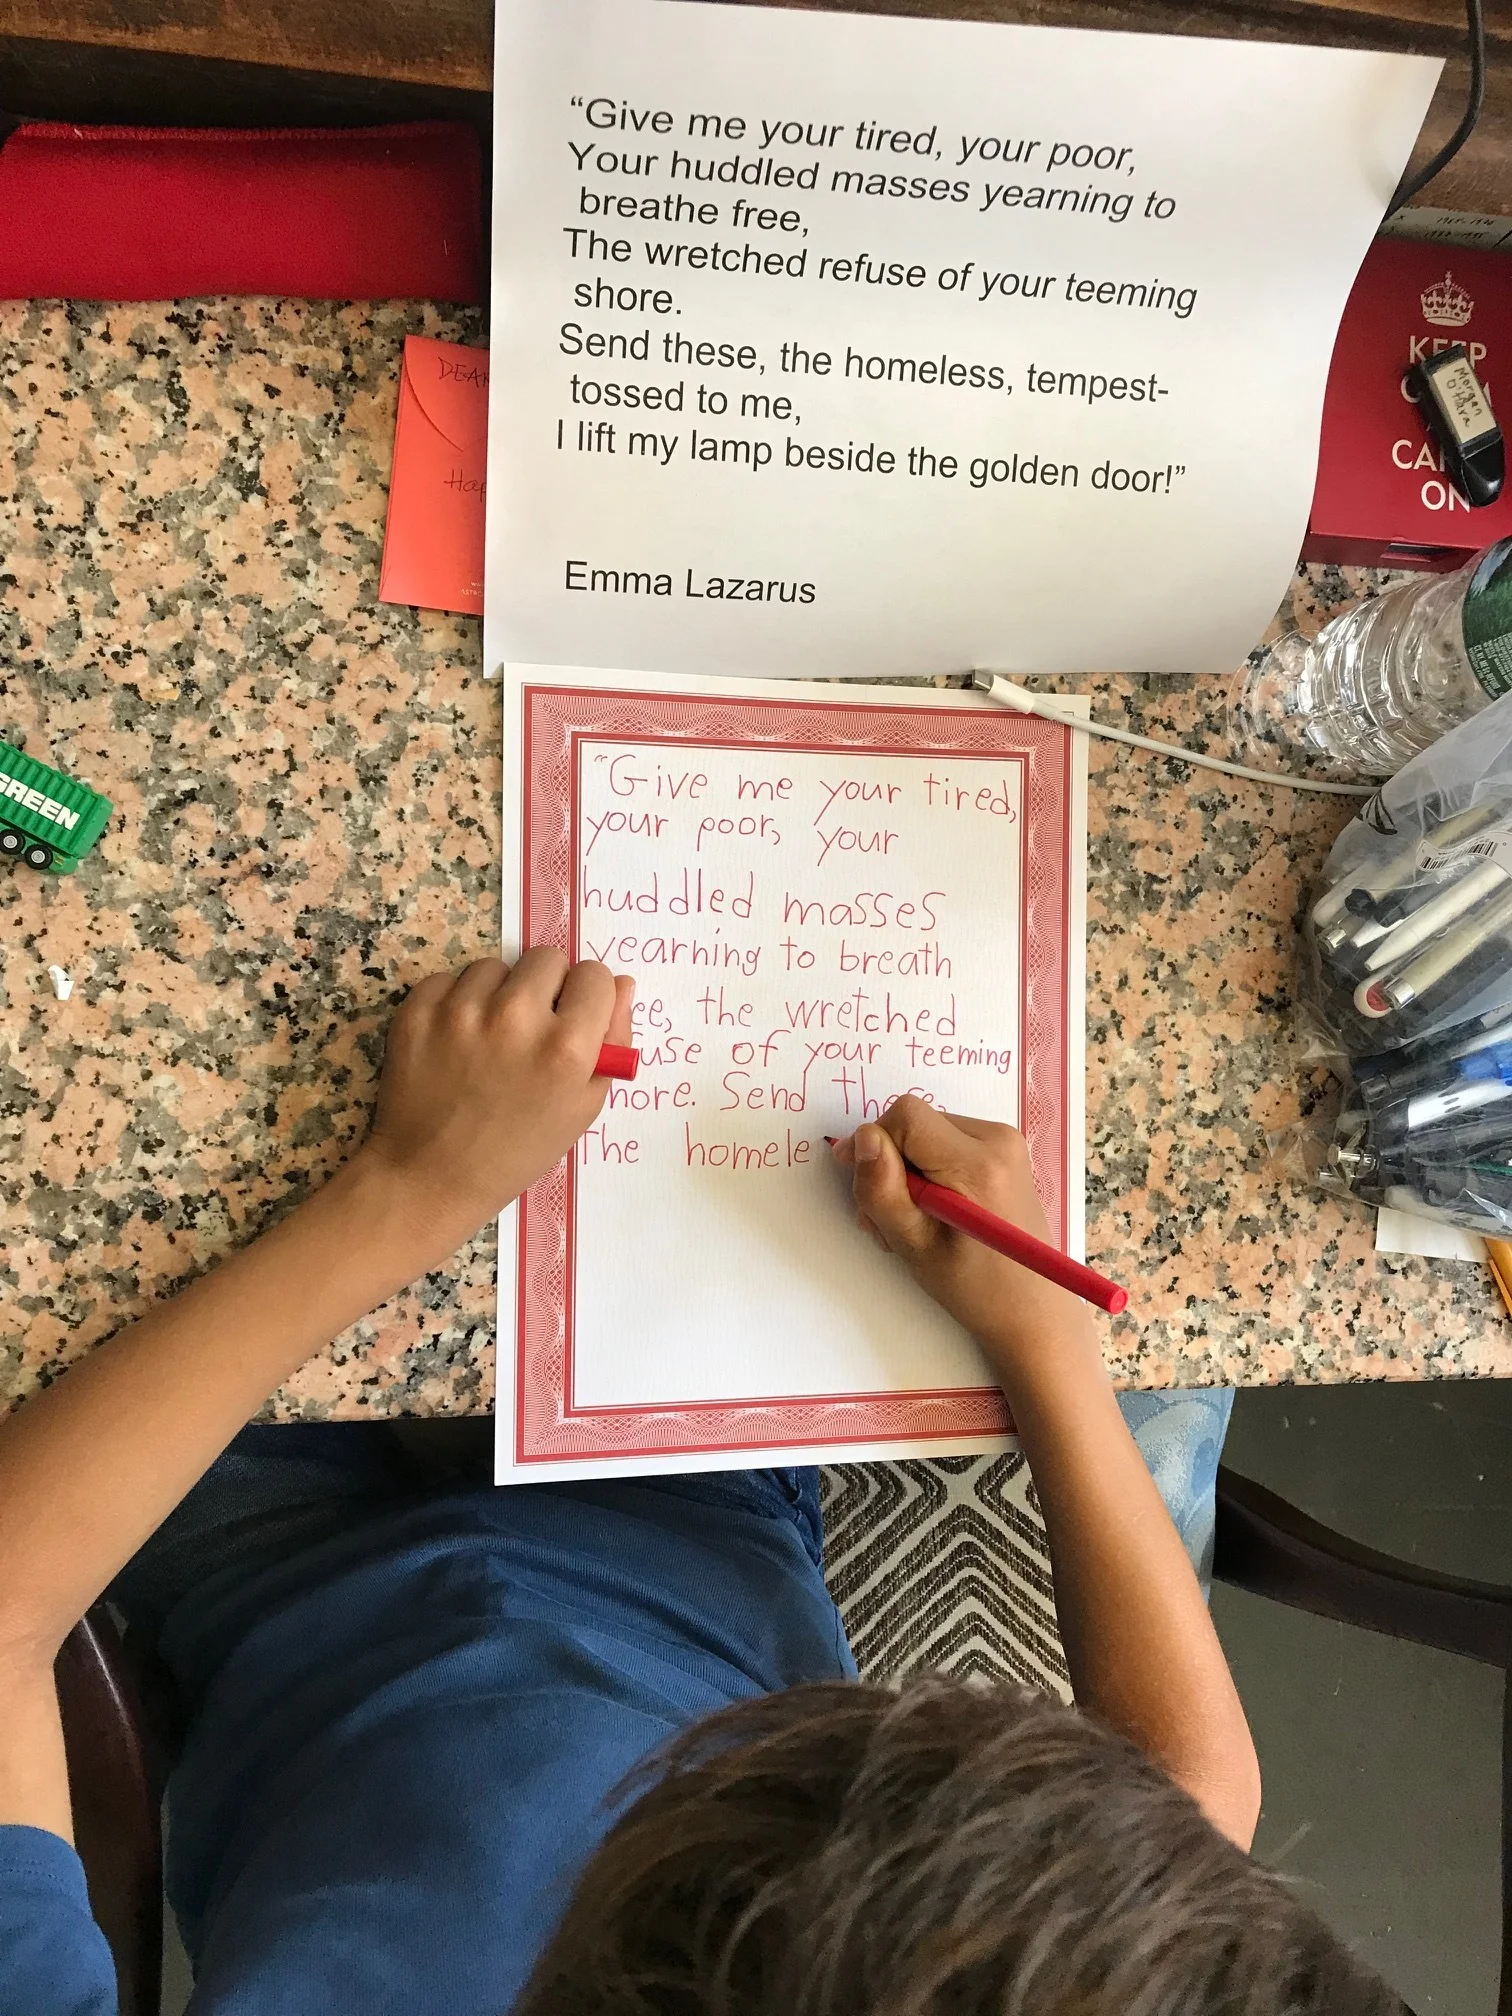 “Give me your tired, your poor,
Your huddled masses yearning to
breathe free,
The wretched refuse of your teeming
shore.
Send these, the homeless, tempest-
tossed to me,
I lift my lamp beside the golden door!”
Emma Lazarus
DEAR
Hap
KEEP
CA
ON
Morgan
O'Hara
GREEN
“Give me your tired,
your poor, your
huddled masses
yearning to breath
ee, the wretched
fuse of your teeming
hore. Send These,
The homele